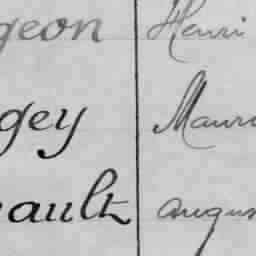 geon Henri
gey Mauri
eault Augus